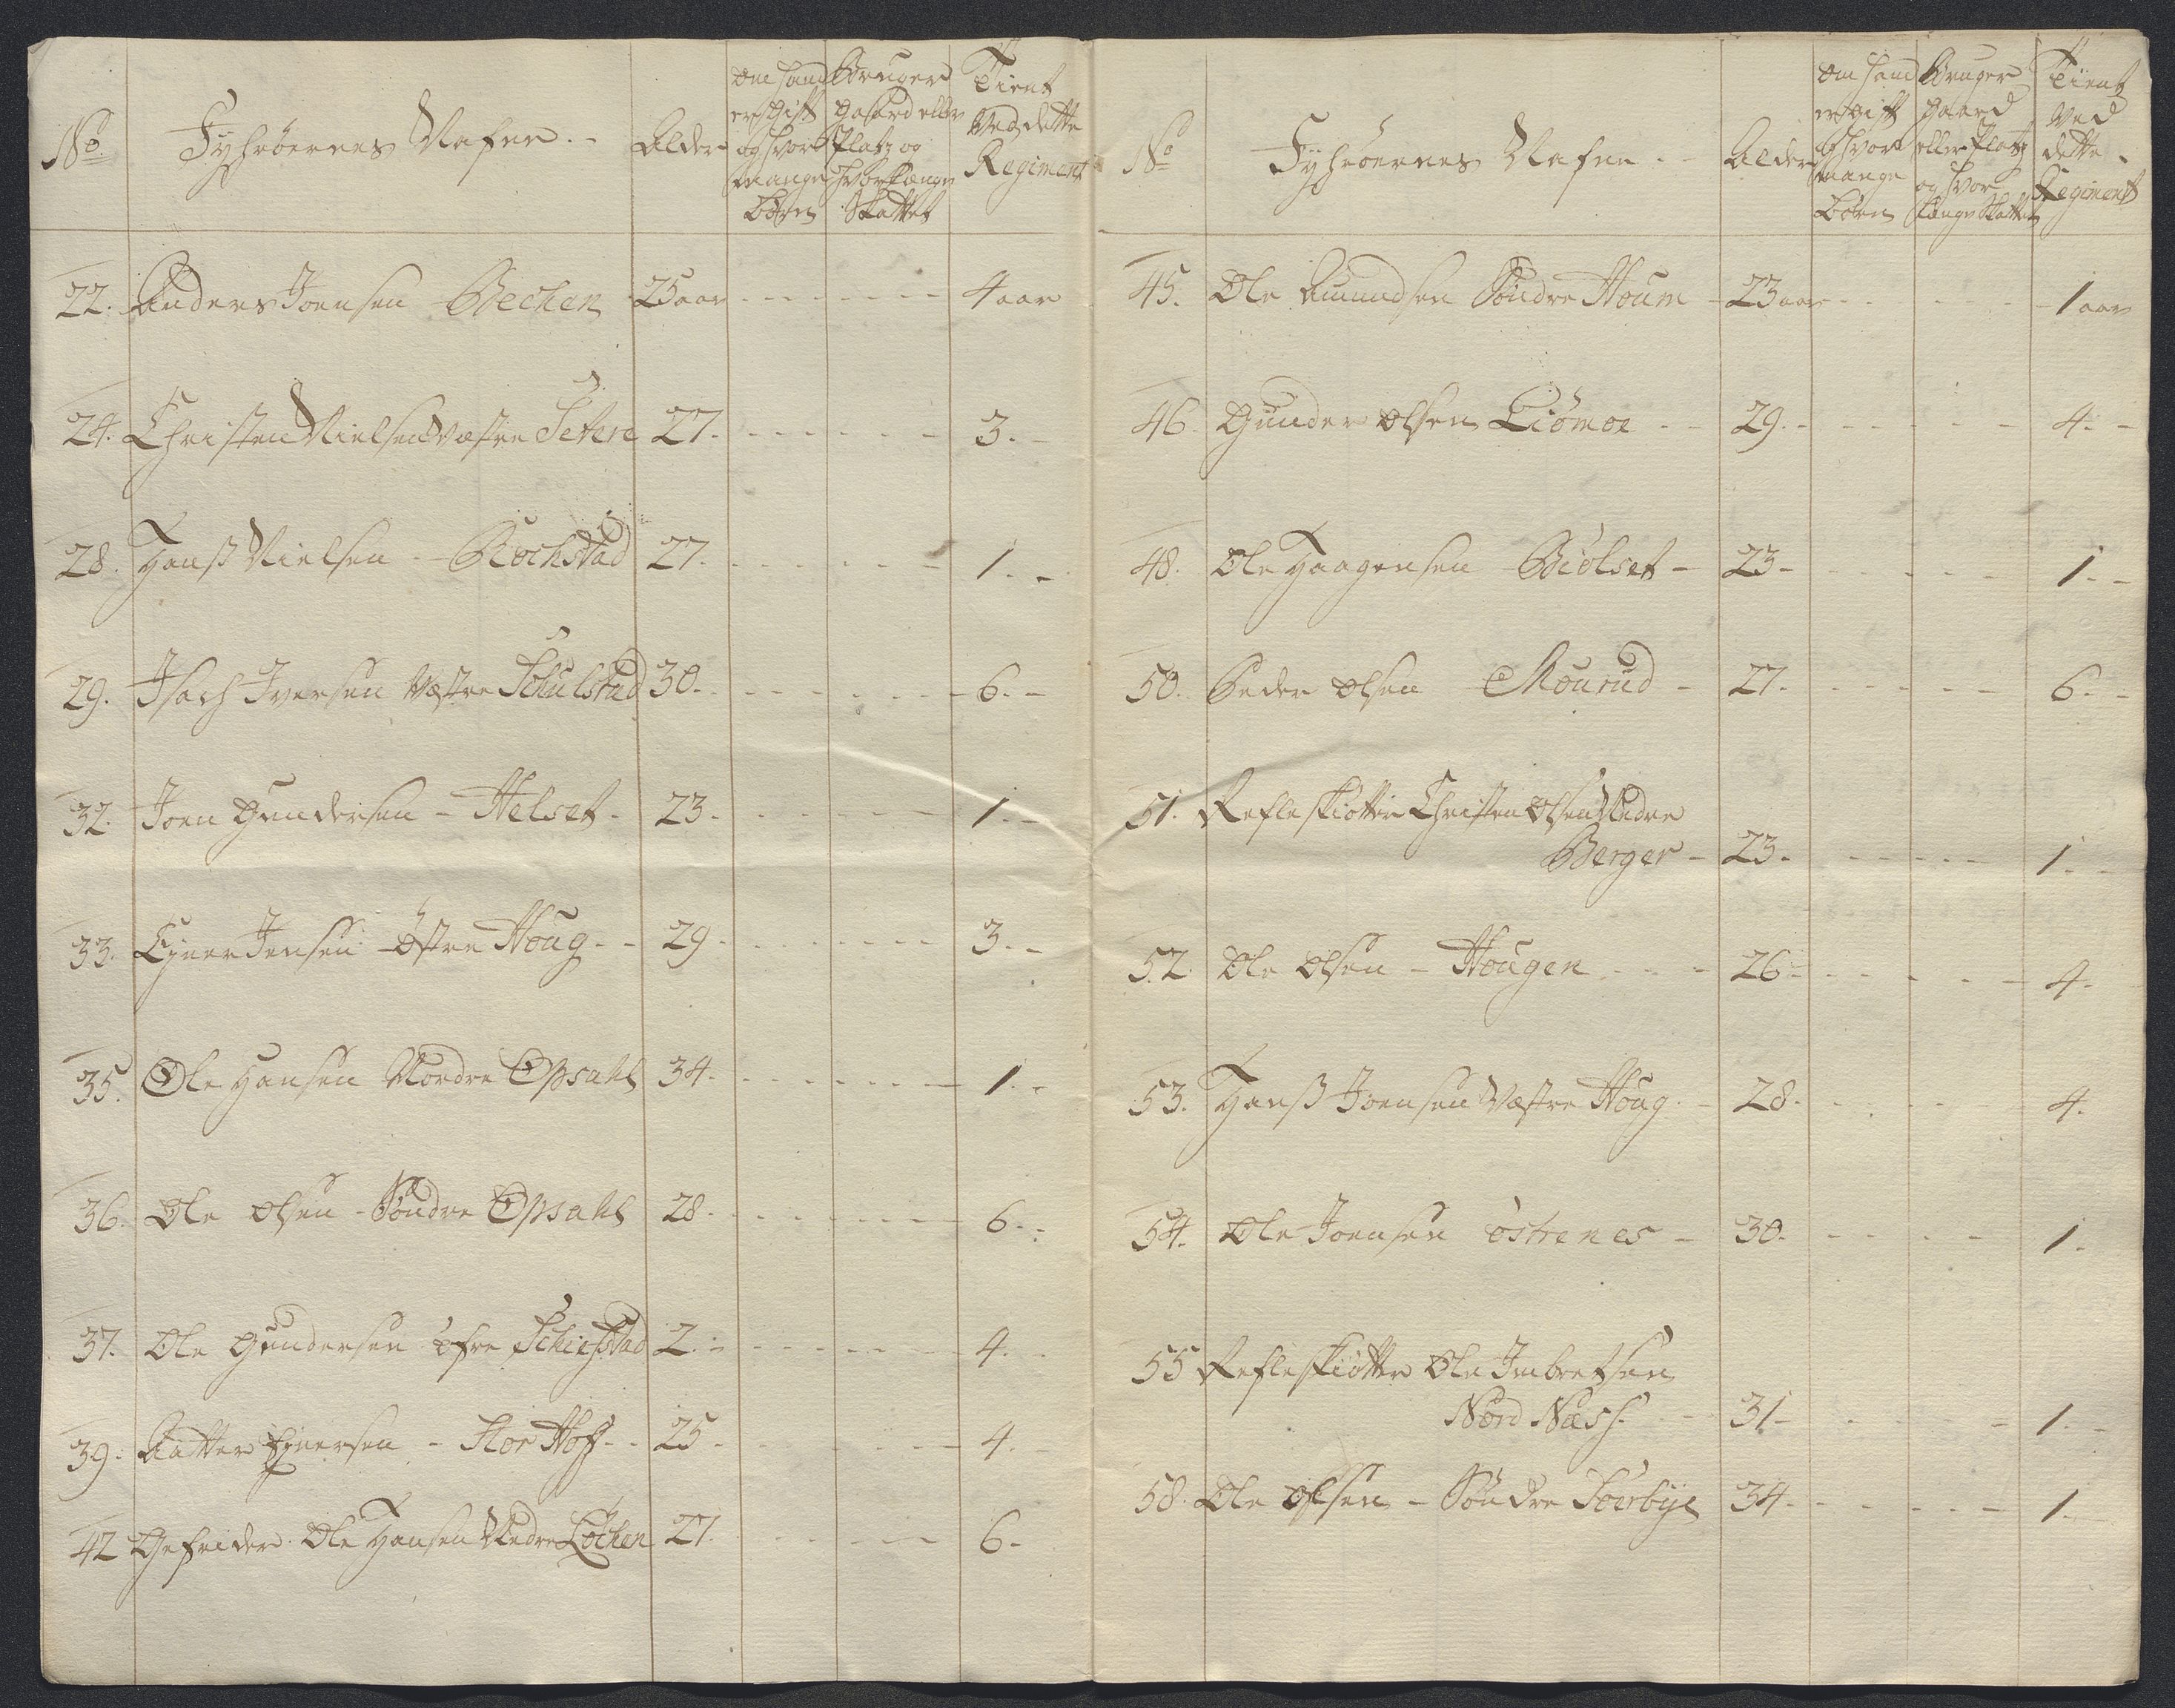 No. Fyhrörernes Nafne. - Alder om hand er gift og hvor mange börn Bruger gaard eller Platz og hvor længe Skattet Tient Ved dette Regiment
22. Anders Joensen Bechen 25 aar - - - - - - 4 aar
24. Christen Nielsen Vestre Setere 27. - - - - - - 3. -
28. Hanß Nielsen - Rochstad 27. - - - - - - 1. -
29. Isach Iversen Vestre Schulstad 30. - - - - - - 6. -
32. Joen Gundersen - Helset - 23. - - - - - - 1. -
33. Ejner Jensen - Östre Houg - - 29. - - - - - - 3. -
35. Ole Hansen Nordre Opsahl 34. - - - - - - 1. -
36. Ole Olsen - Söndre Opsahl 28. - - - - - - 6. -
37. Ole Gundersen öfre Schiefstad 2. - - - - - - 4. -
39. Ejnersen - Stor Hof - - 25. - - - - - - 4. -
42 Gefrider Ole Hansen Nedre Löchen 27. - - - - - 6. -
No. Fyhrörernes Nafne. - Alder om hand er gift og hvor mange Börn Bruger gaard eller Platz og hvor længe Skattet Tient Ved dette Regiment
45. Ole Amundsen Söndre Houm - 23 aar - - - - - 1 aar
46. Gunder Olsen Liömoe - - 29. - - - - - - 4. -
48. Ole Haagensen Biölset - 23 - - - - - 1. -
50. Peder Olsen Mourud - 27. - - - - - 6. -
51. Refleskiötter Christen Olsen Nedre
Berger - 23. - - - - - 1. -
52. Ole Olsen - Hougen - - - 26 - - - - - - 4. -
53. Hanß Joensen Vestre Houg - 28. - - - - 4.
54. Ole Joensen östrenes - 30. - - - - 1.
55 Refleskiötter Ole Imbretsen
Nord Næss - - 31 - - - 1. -
58. Ole Olsen - Söndre Soerbye 34. - - - - - 1. -